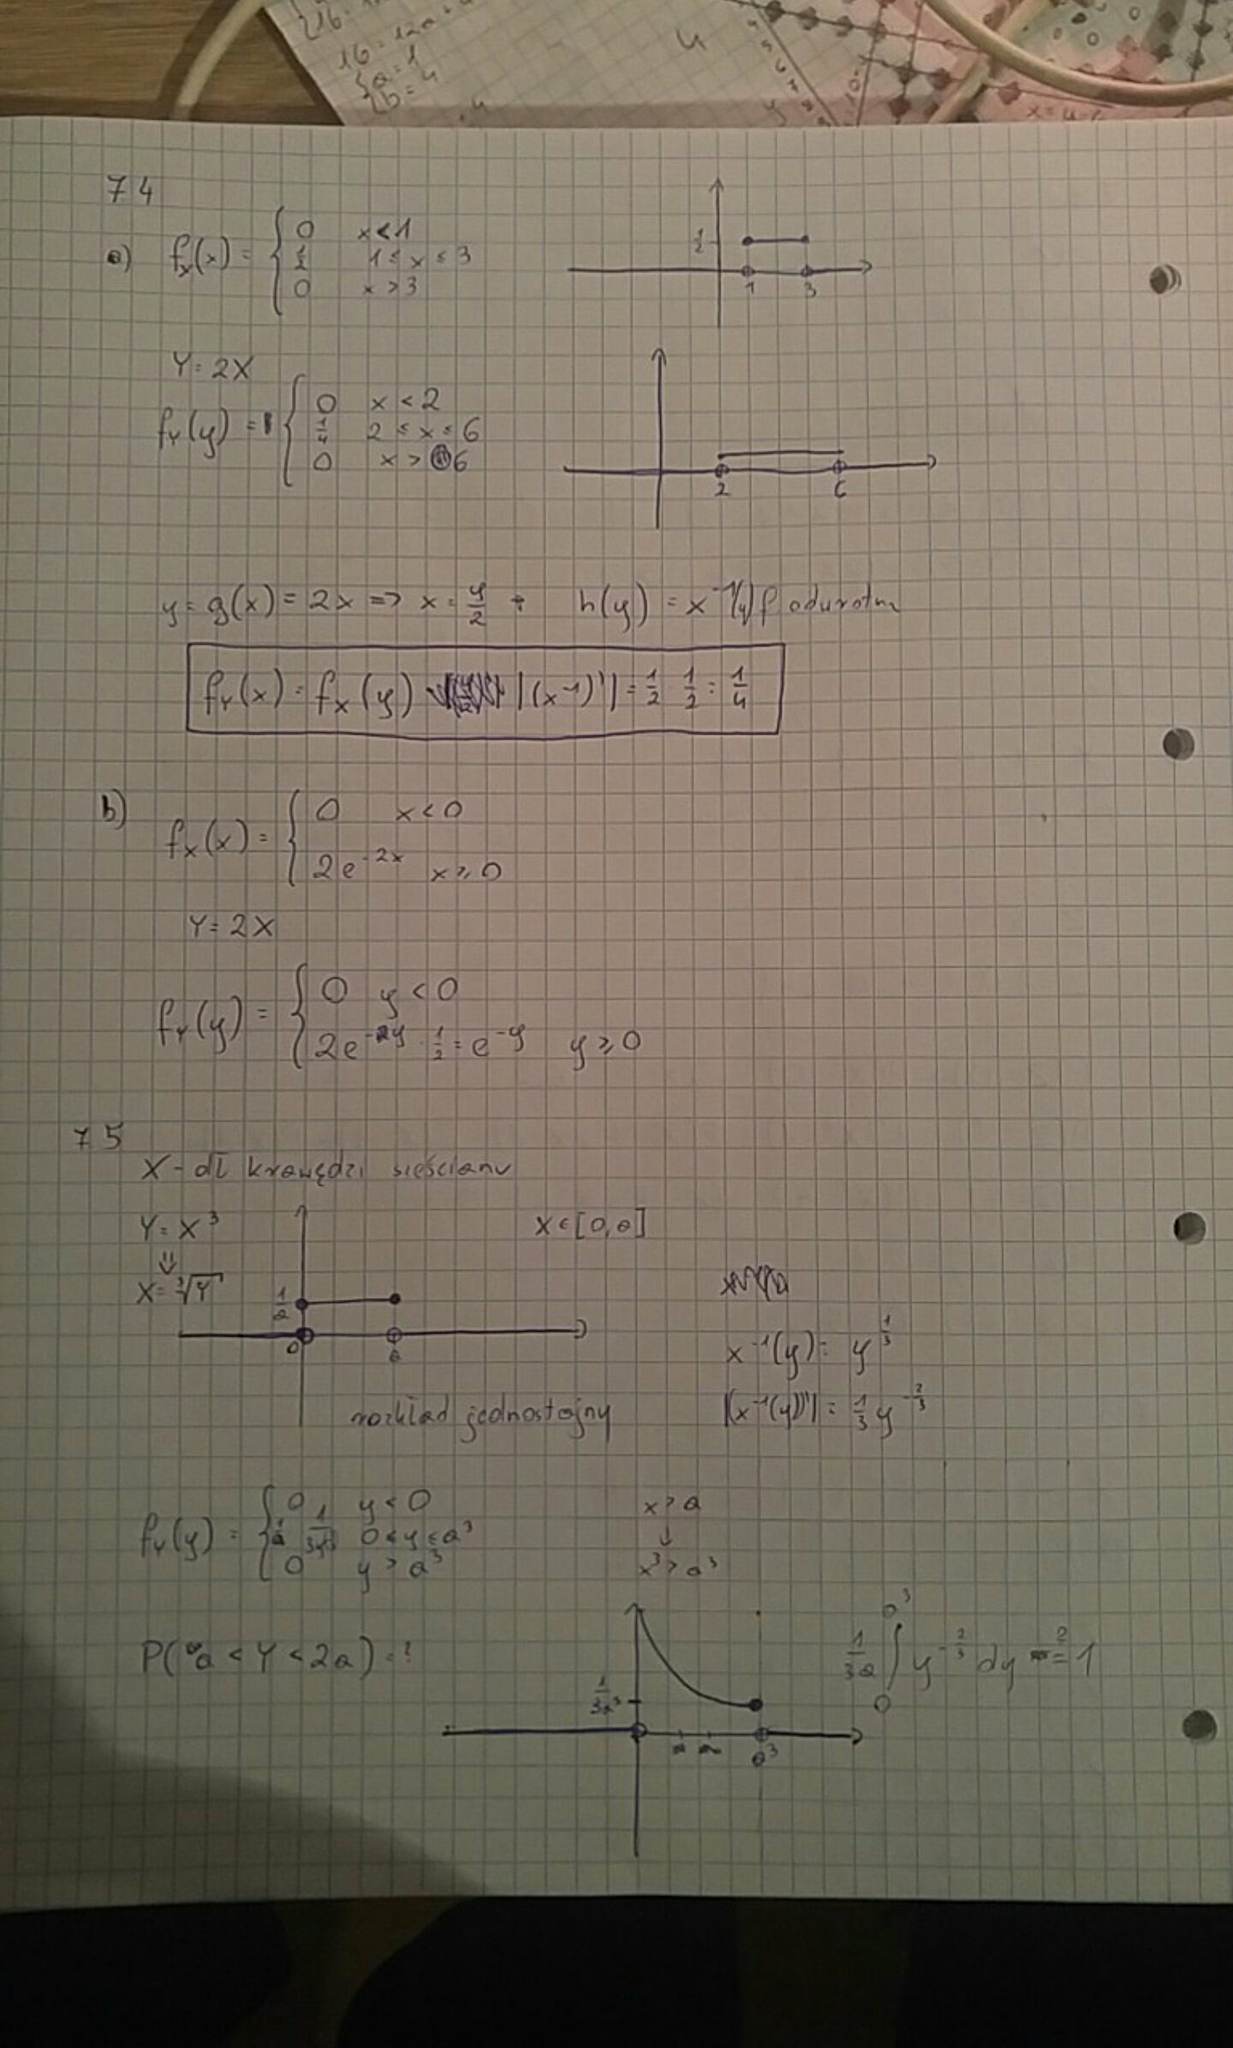 16 = 12a
{a = 1
{b = 4
x = 4
7 4
a) fx(x) = { 0 x < 1
1/2 1 ≤ x ≤ 3
0 x > 3
1/2
1 3
Y = 2X
fY(y) = { 0 x < 2
1/4 2 ≤ x ≤ 6
0 x > 6
2 6
y = g(x) = 2x => x = y/2 h(y) = x⁻¹(y) f odwrotna
fY(x) = fX(y) |(x⁻¹)'| = 1/2 1/2 = 1/4
b) fX(x) = { 0 x < 0
2e^-2x x ≥ 0
Y = 2X
fY(y) = { 0 y < 0
2e^-2y · 1/2 = e^-y y ≥ 0
7 5
X - dł krawędzi sieścianu
Y = X³ X ∈ [0, a]
⇓
X = ³√Y
1/a
0 a
x⁻¹(y) = y^1/3
|(x⁻¹(y))'| = 1/3 y^-2/3
rozkład jednostajny
fY(y) = { 0 y < 0
1/a 0 < y ≤ a³
0 y > a³
x > a
↓
x³ > a³
P(a < Y < 2a) = ?
1/3a³
a³
1/3a ∫₀^a³ y^-2/3 dy ?= 1